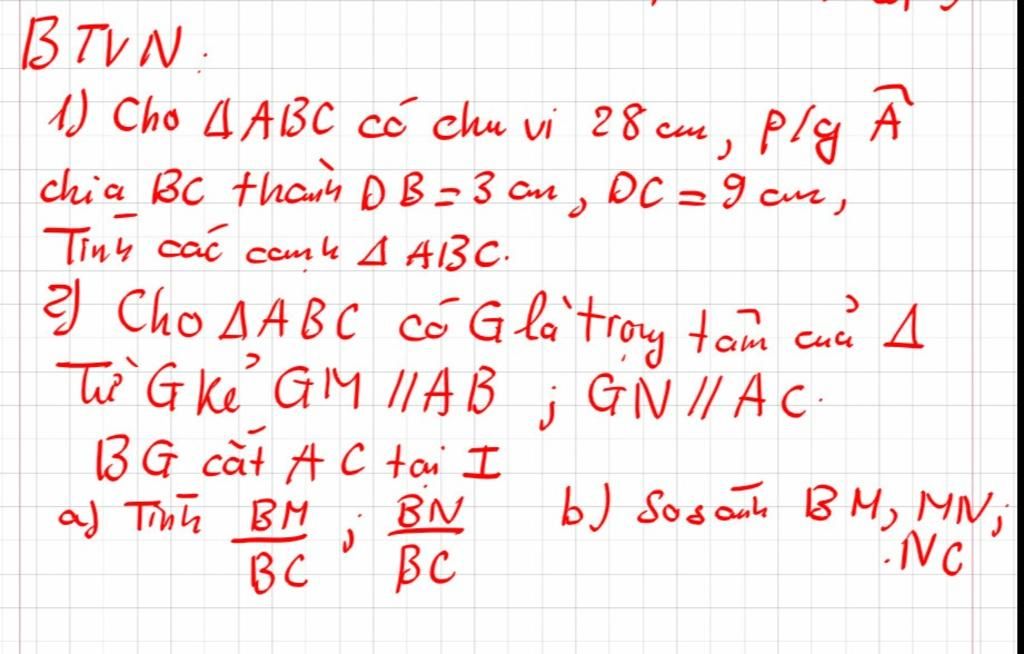 BTVN:
1) Cho ΔABC có chu vi 28 cm, p/g Â
chia BC thành DB = 3 cm, DC = 9 cm,
Tính các cạnh Δ ABC.
2) Cho ΔABC có G là trọng tâm của Δ
Từ G kẻ GM // AB ; GN // AC.
BG cắt AC tại I
a) Tính BM/BC ; BN/BC b) So sánh BM, MN;
NC